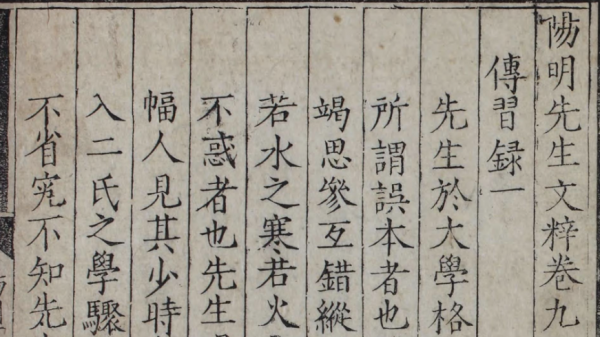 陽明先生文粹卷九
傳習録一
先生於大學格
所謂誤本者也
竭思參互錯縱
若水之寒若火
不惑者也先生
幅人見其少時
入二氏之學驟
不省究不知先